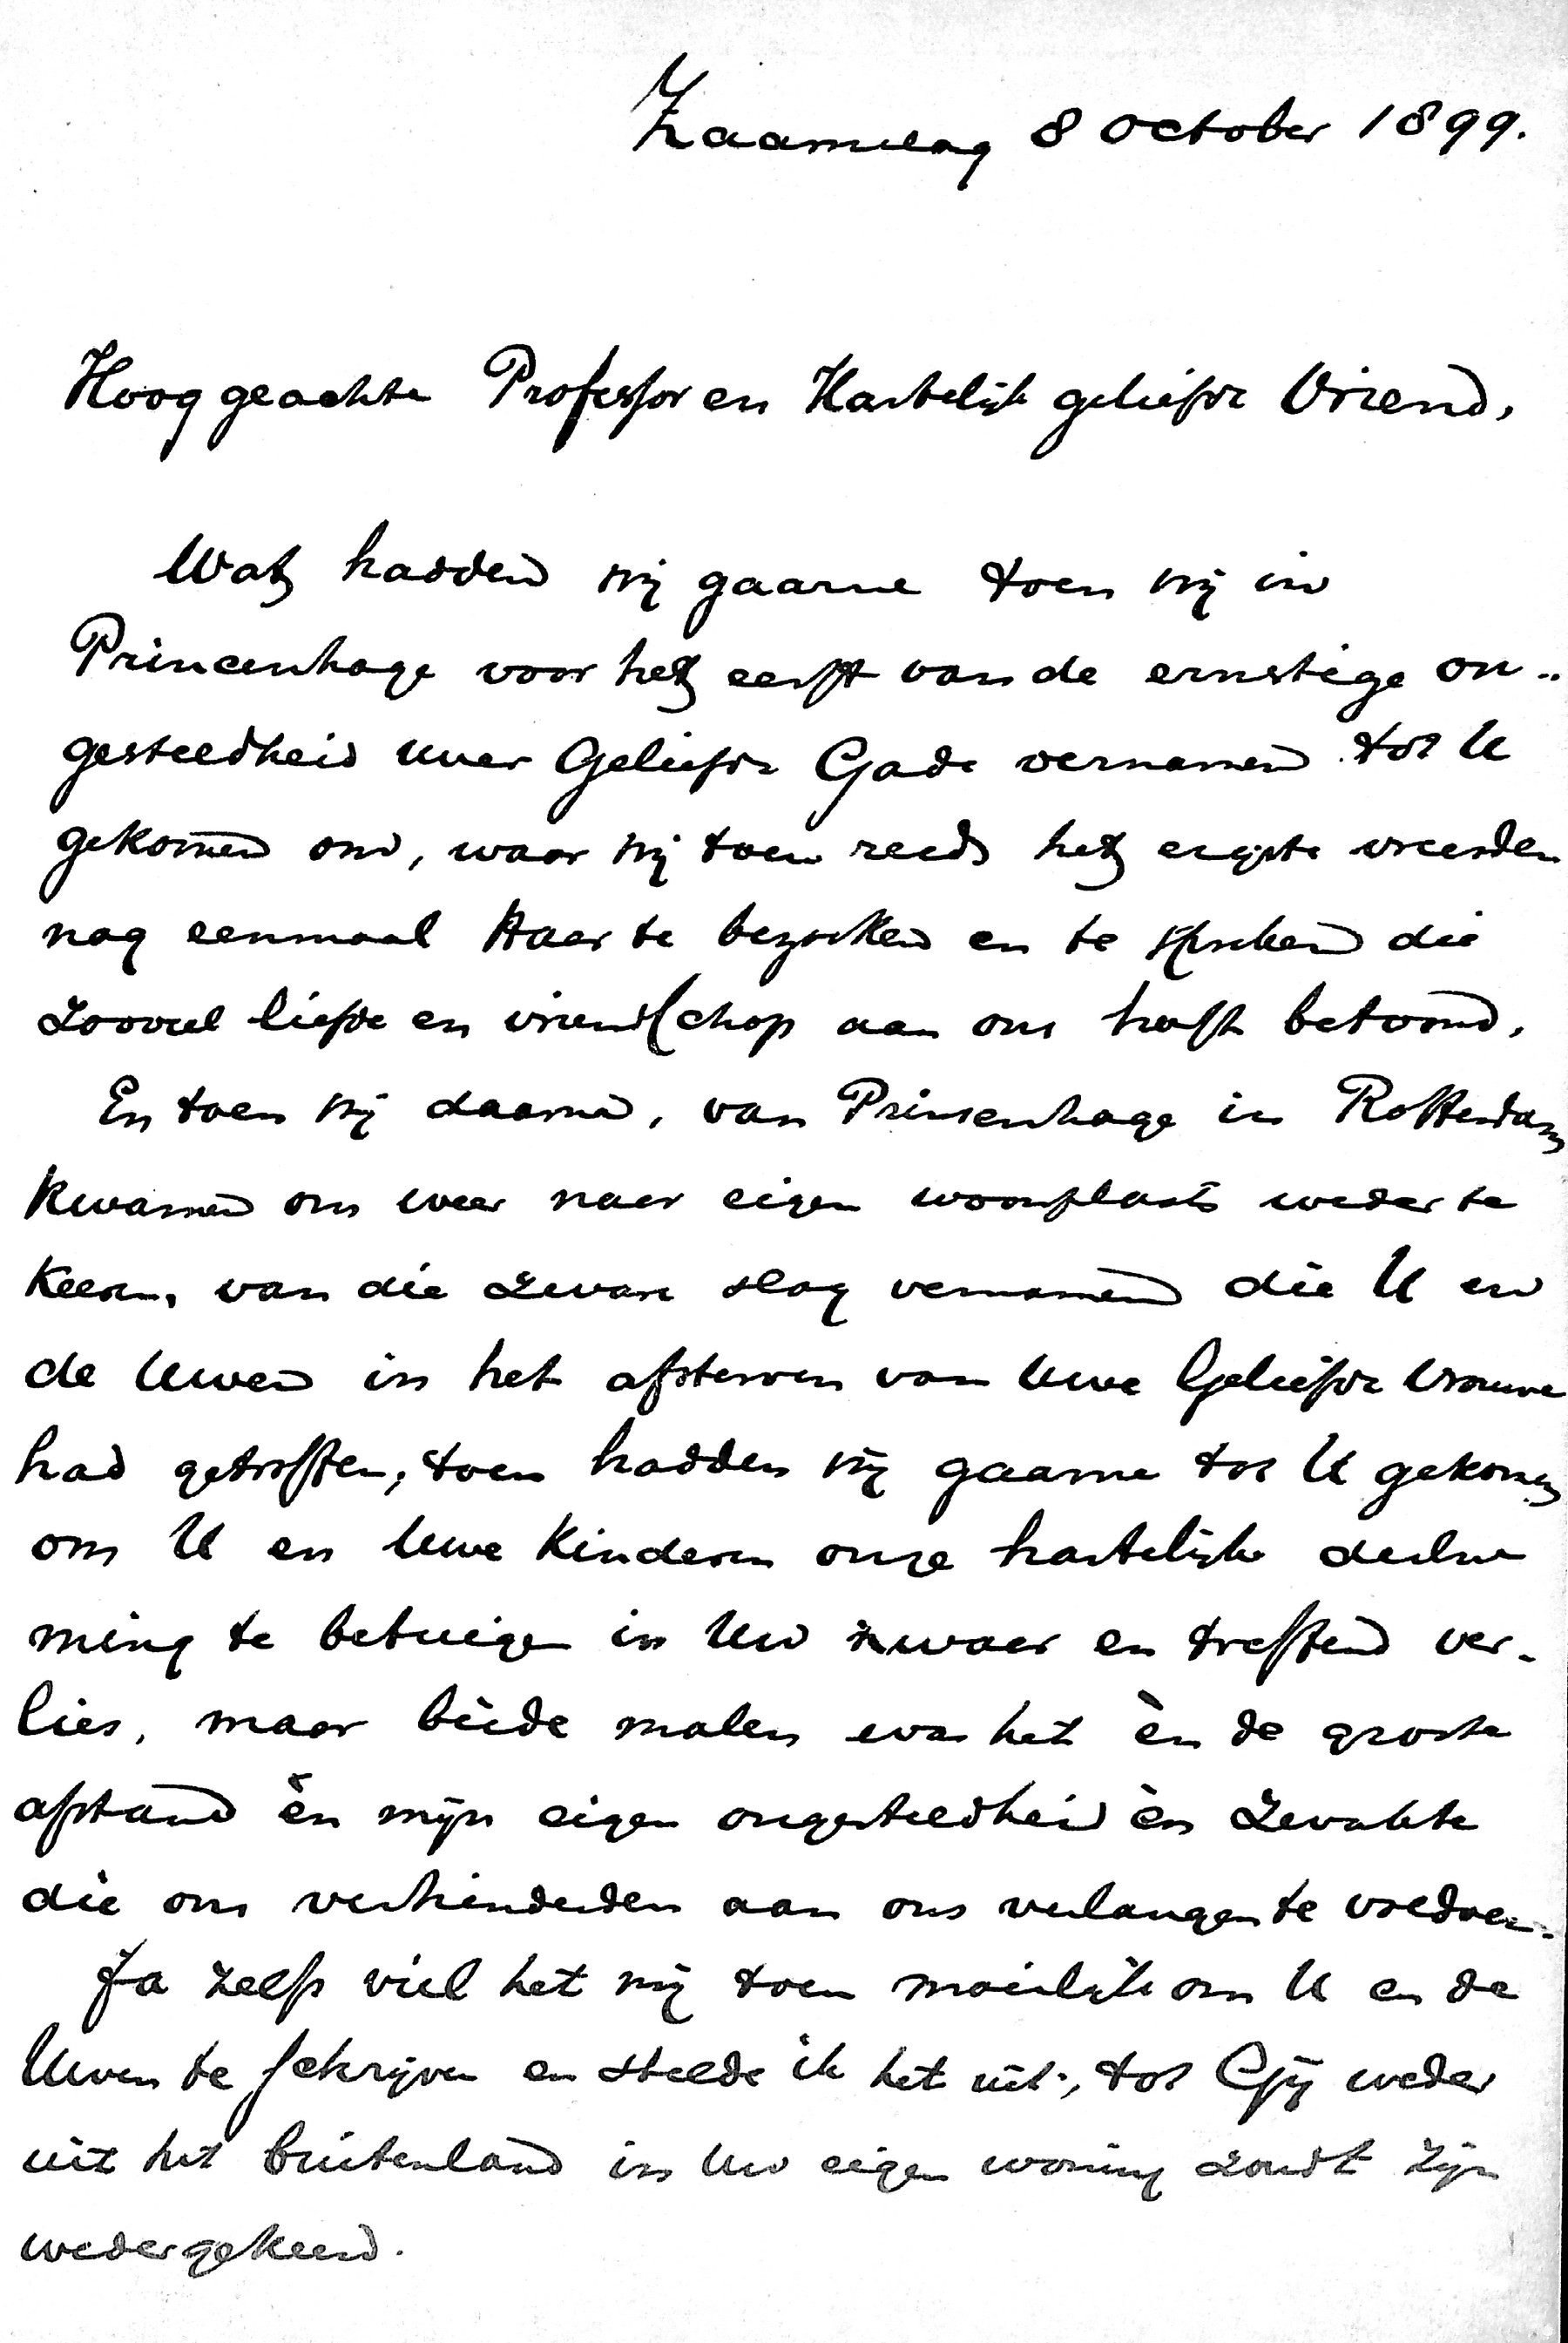 Zaamslag 8 October 1899.
Hooggeachte Professor en Hartelijk geliefde Vriend,
Wat hadden wij gaarne toen wij in
Princenhage voor het eerst van de ernstige on-
gesteldheid uwer Geliefde Gade vernamen tot U
gekomen om, waar wij toen reeds het ergste vreesden
nog eenmaal Haar te bezoeken en te spreken die
zooveel liefde en vriendschap aan ons heeft betoond.
En toen wij daarna, van Prinsenhage in Rotterdam
kwamen om weer naar eigen woonplaats weder te
keeren, van die zware slag vernamen die U en
de Uwen in het afsterven van Uwe Geliefde Vrouwe
had getroffen, toen hadden wij gaarne tot U gekomen
om U en Uwe Kinderen onze hartelijke deelne
ming te betuigen in Uw zwaar en treffend ver-
lies, maar beide malen was het èn de groote
afstand èn mijn eigen ongesteldheid èn zwakte
die ons verhinderden aan ons verlangen te voldoen.
Ja zelfs viel het mij toen moeilijk om U en de
Uwen te schrijven en stelde ik het uit, tot Gij weder
uit het buitenland in Uw eigen woning zoudt zijn
wedergekeerd.